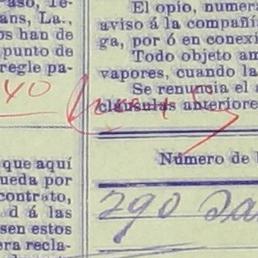 aso, Te-
ans, La.,
os han de
punto de
regle pa-
40
que aquí
ueda por
contrato,
d á las
sen estos
era recla-
El opio, numera
aviso á la compañí
ga, por ó en conexi
Todo objeto am
vapores, cuando la
Se renuncia el a
cláusulas anteriore
Número de
290